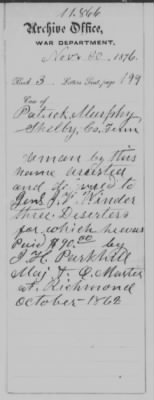 11.866
Archive Office,
WAR DEPARTMENT,
Nov 20, 1876.
Book 3 Letters Sent, page 199
Case of
Patrick Murphy
Shelby, Co, Tenn
A man by this
name arrested
and delivered to
Genl J. H. Winder
three Deserters
for which he was
Paid $90.00 by
J. H. Parkhill
Maj & Q. Master
at Richmond
October 1862